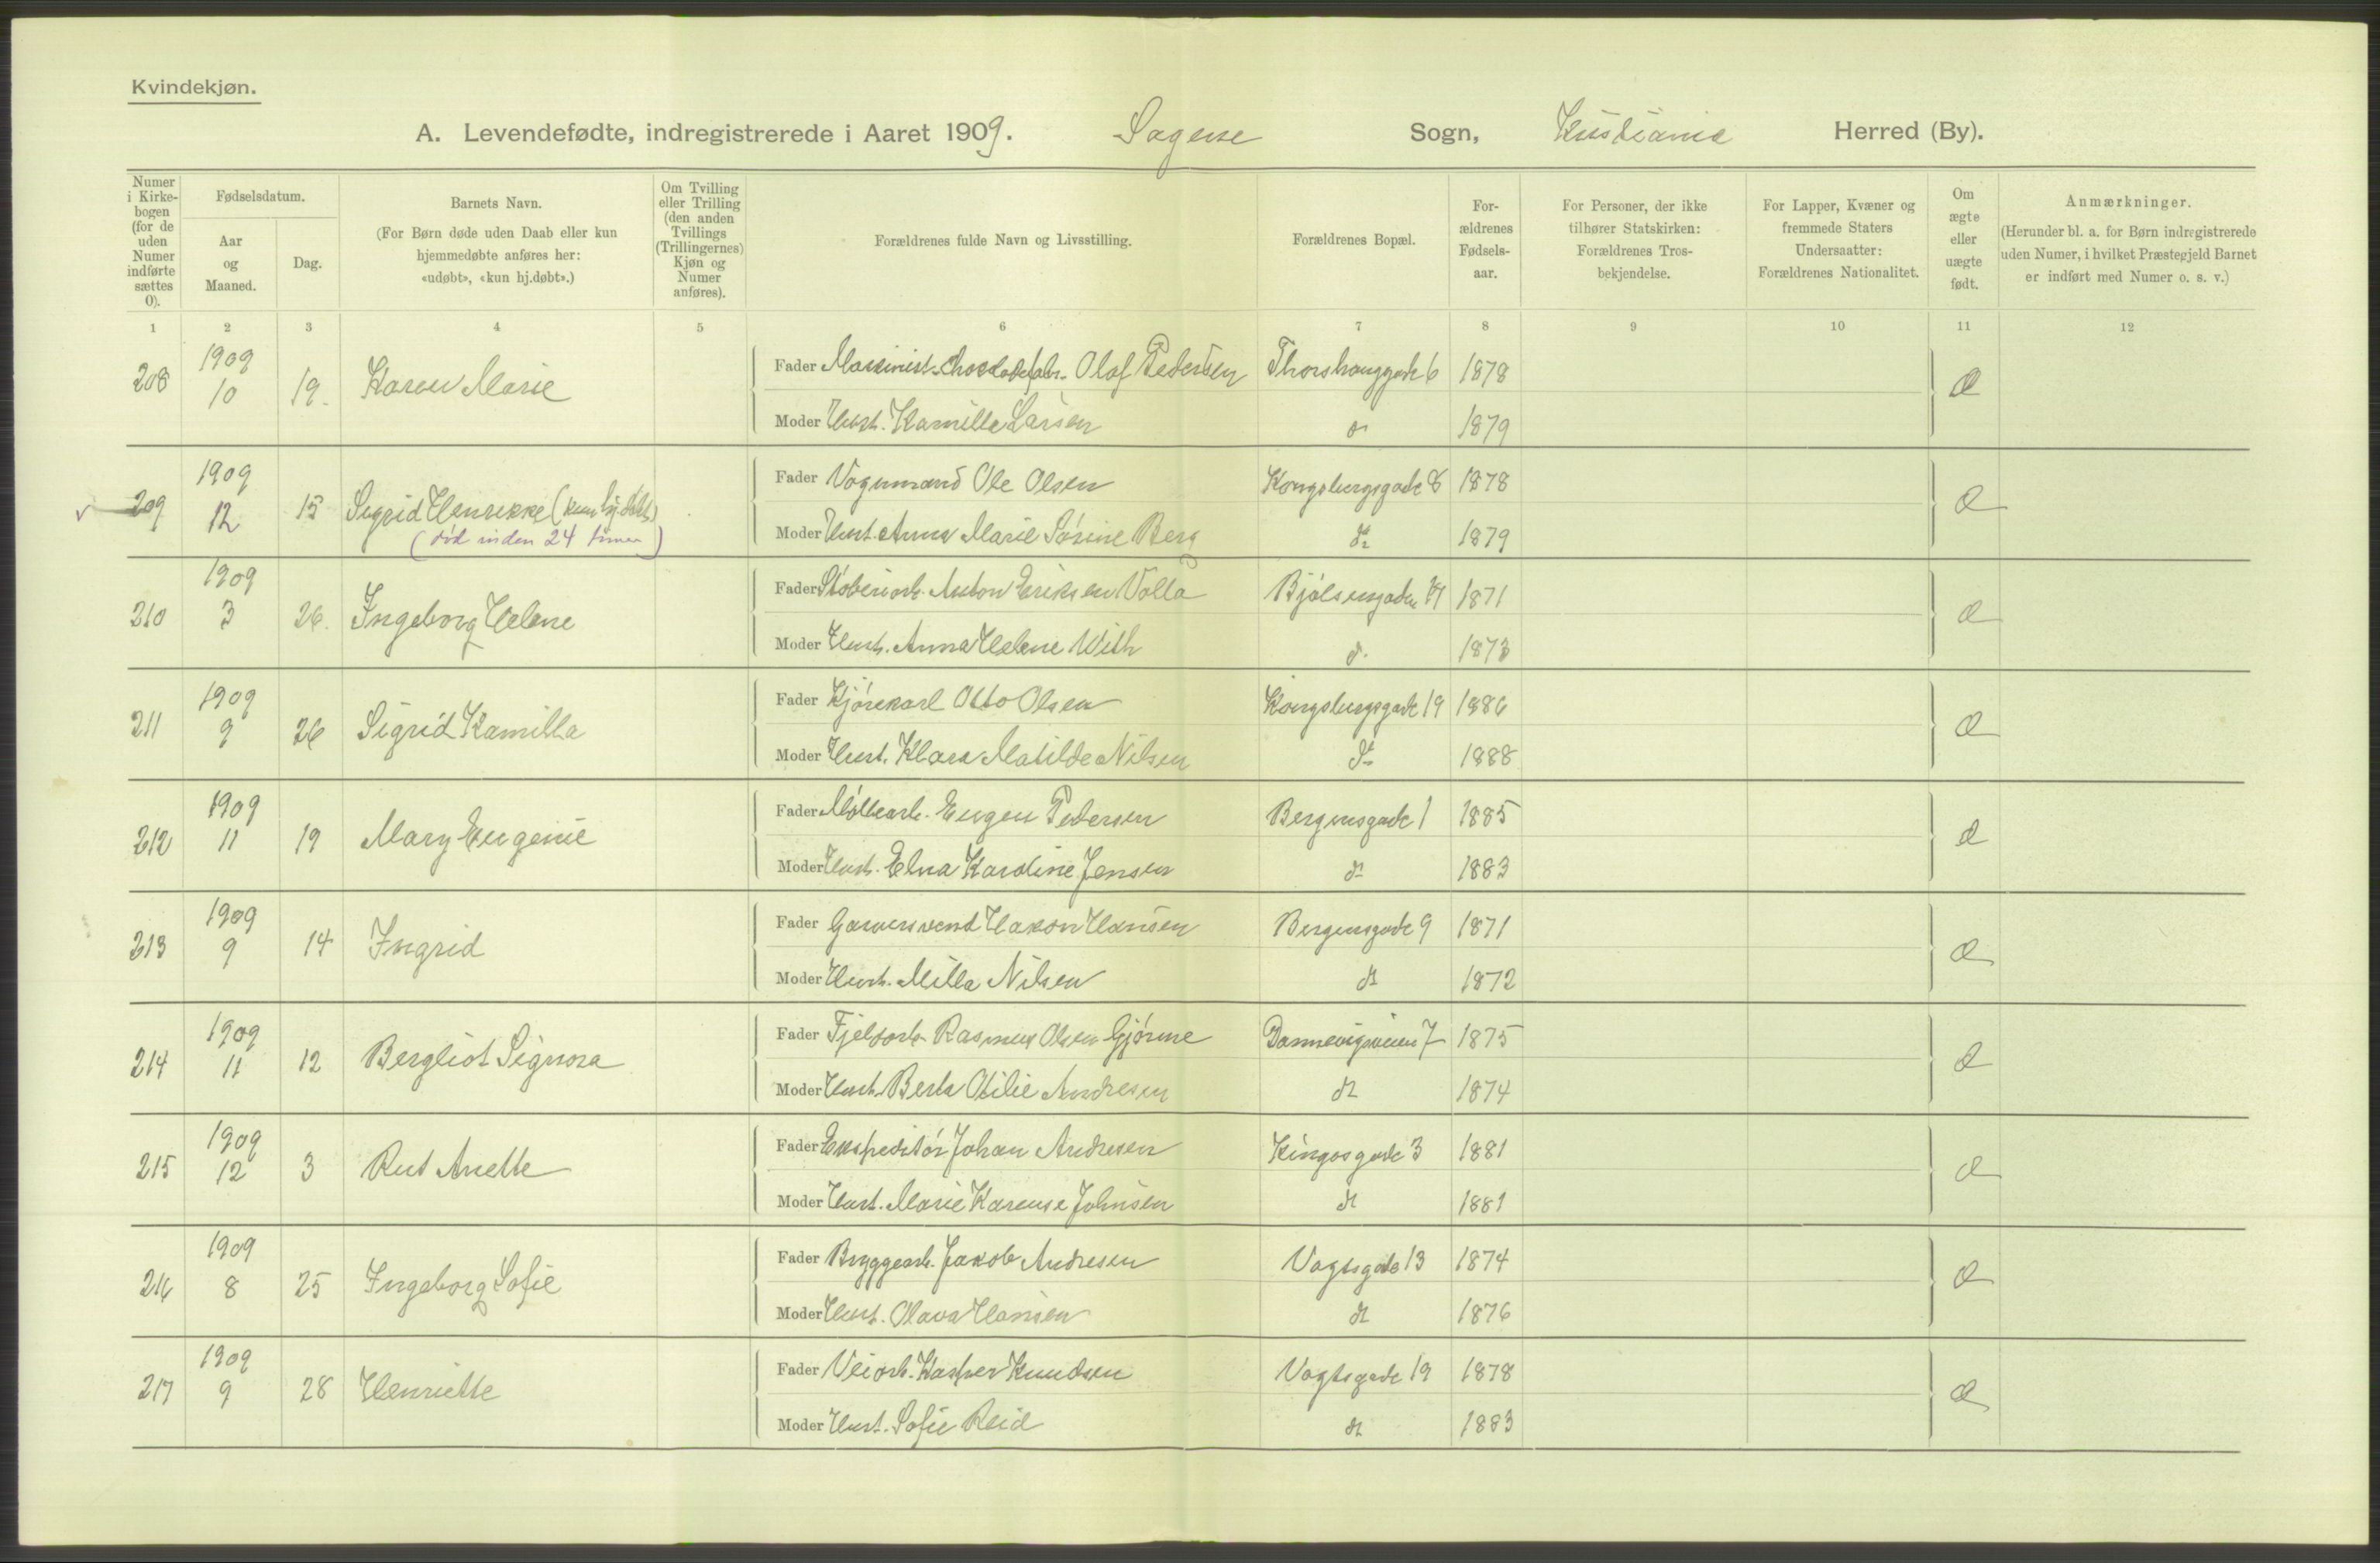 Kvindekjøn.
A. Levendefødte, indregistrerede i Aaret 1909. Sagene Sogn, Kristiania Herred (By).
Numer i Kirkebogen (for de uden Numer indførte sættes 0).
Fødselsdatum.
Aar og Maaned.
Dag.
Barnets Navn.
(For Børn døde uden Daab eller kun
hjemmedøbte anføres her:
«udøbt», «kun hj.døbt».)
Om Tvilling eller Trilling (den anden Tvillings (Trillingernes) Kjøn og Numer anføres).
Forældrenes fulde Navn og Livsstilling.
Forældrenes Bopæl.
Forældrenes Fødselsaar.
For Personer, der ikke
tilhører Statskirken:
Forældrenes Trosbekjendelse.
For Lapper, Kvæner og
fremmede Staters
Undersaatter:
Forældrenes Nationalitet.
Om ægte eller uægte født.
Anmærkninger.
(Herunder bl. a. for Børn indregistrerede
uden Numer, i hvilket Præstegjeld Barnet
er indført med Numer o. s. v.)
1 2 3 4 5 6 7 8 9 10 11 12
208 1909 10 19. Karen Marie
Fader Maskinist. Chocoladefabr. Olaf Pedersen Thorshauggade 6 1878
Moder Hust. Kamilla Larsen 1879
209 1909 12 15 Sigrid Henrikke (kun hj.døbt)
(død inden 24 timer)
Fader Vognmand Ole Olsen Kongsbergsgade 8 1878
Moder Hust. Anna Marie Sørine Berg 1879
210 1909 3 26. Ingeborg Helene
Fader Støberiarb. Anton Eriksen Volla Bjølsensgaden 1871
Moder Hust. Anna Helene With 1873
211 1909 9 26 Sigrid Kamilla
Fader Kjørekarl Otto Olsen Kongsbergsgade 19 1886
Moder Hust. Klara Matilde Nilsen 1888
212 1909 11 19 Mary Eugenie
Fader Møllearb. Eugen Pedersen Bergensgade 1 1885
Moder Hust. Elna Karoline Jensen 1883
213 1909 9 14 Ingrid
Fader Garversvend Hakon Hansen Bergensgade 9 1871
Moder Hust. Milla Nilsen 1872
214 1909 11 12 Bergliot Signora
Fader Fjeldarb. Rasmus Olsen Gjørme Dannevigsveien 7 1875
Moder Hust. Berta Otilie Andresen 1874
215 1909 12 3 Rut Anette
Fader Ekspeditør Johan Andresen Kingosgade 3 1881
Moder Hust. Marie Karense Johnsen 1881
216 1909 8 25 Ingeborg Sofie
Fader Bryggearb. Jakob Andresen Vogtsgade 13 1874
Moder Hust. Olava Hansen 1876
217 1909 9 28 Henriette
Fader Veiarb. Kasper Knudsen Vogtsgade 19 1878
Moder Hust. Sofie Reid 1883